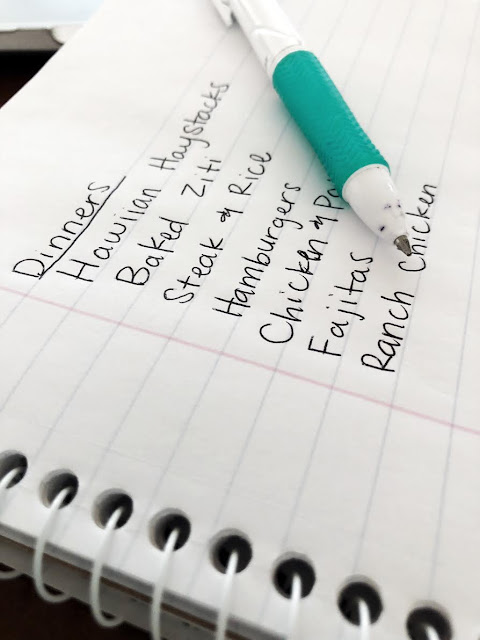 Dinners
Hawiian Haystacks
Baked Ziti
Steak & Rice
Hamburgers
Chicken &
Fajitas
Ranch Chicken